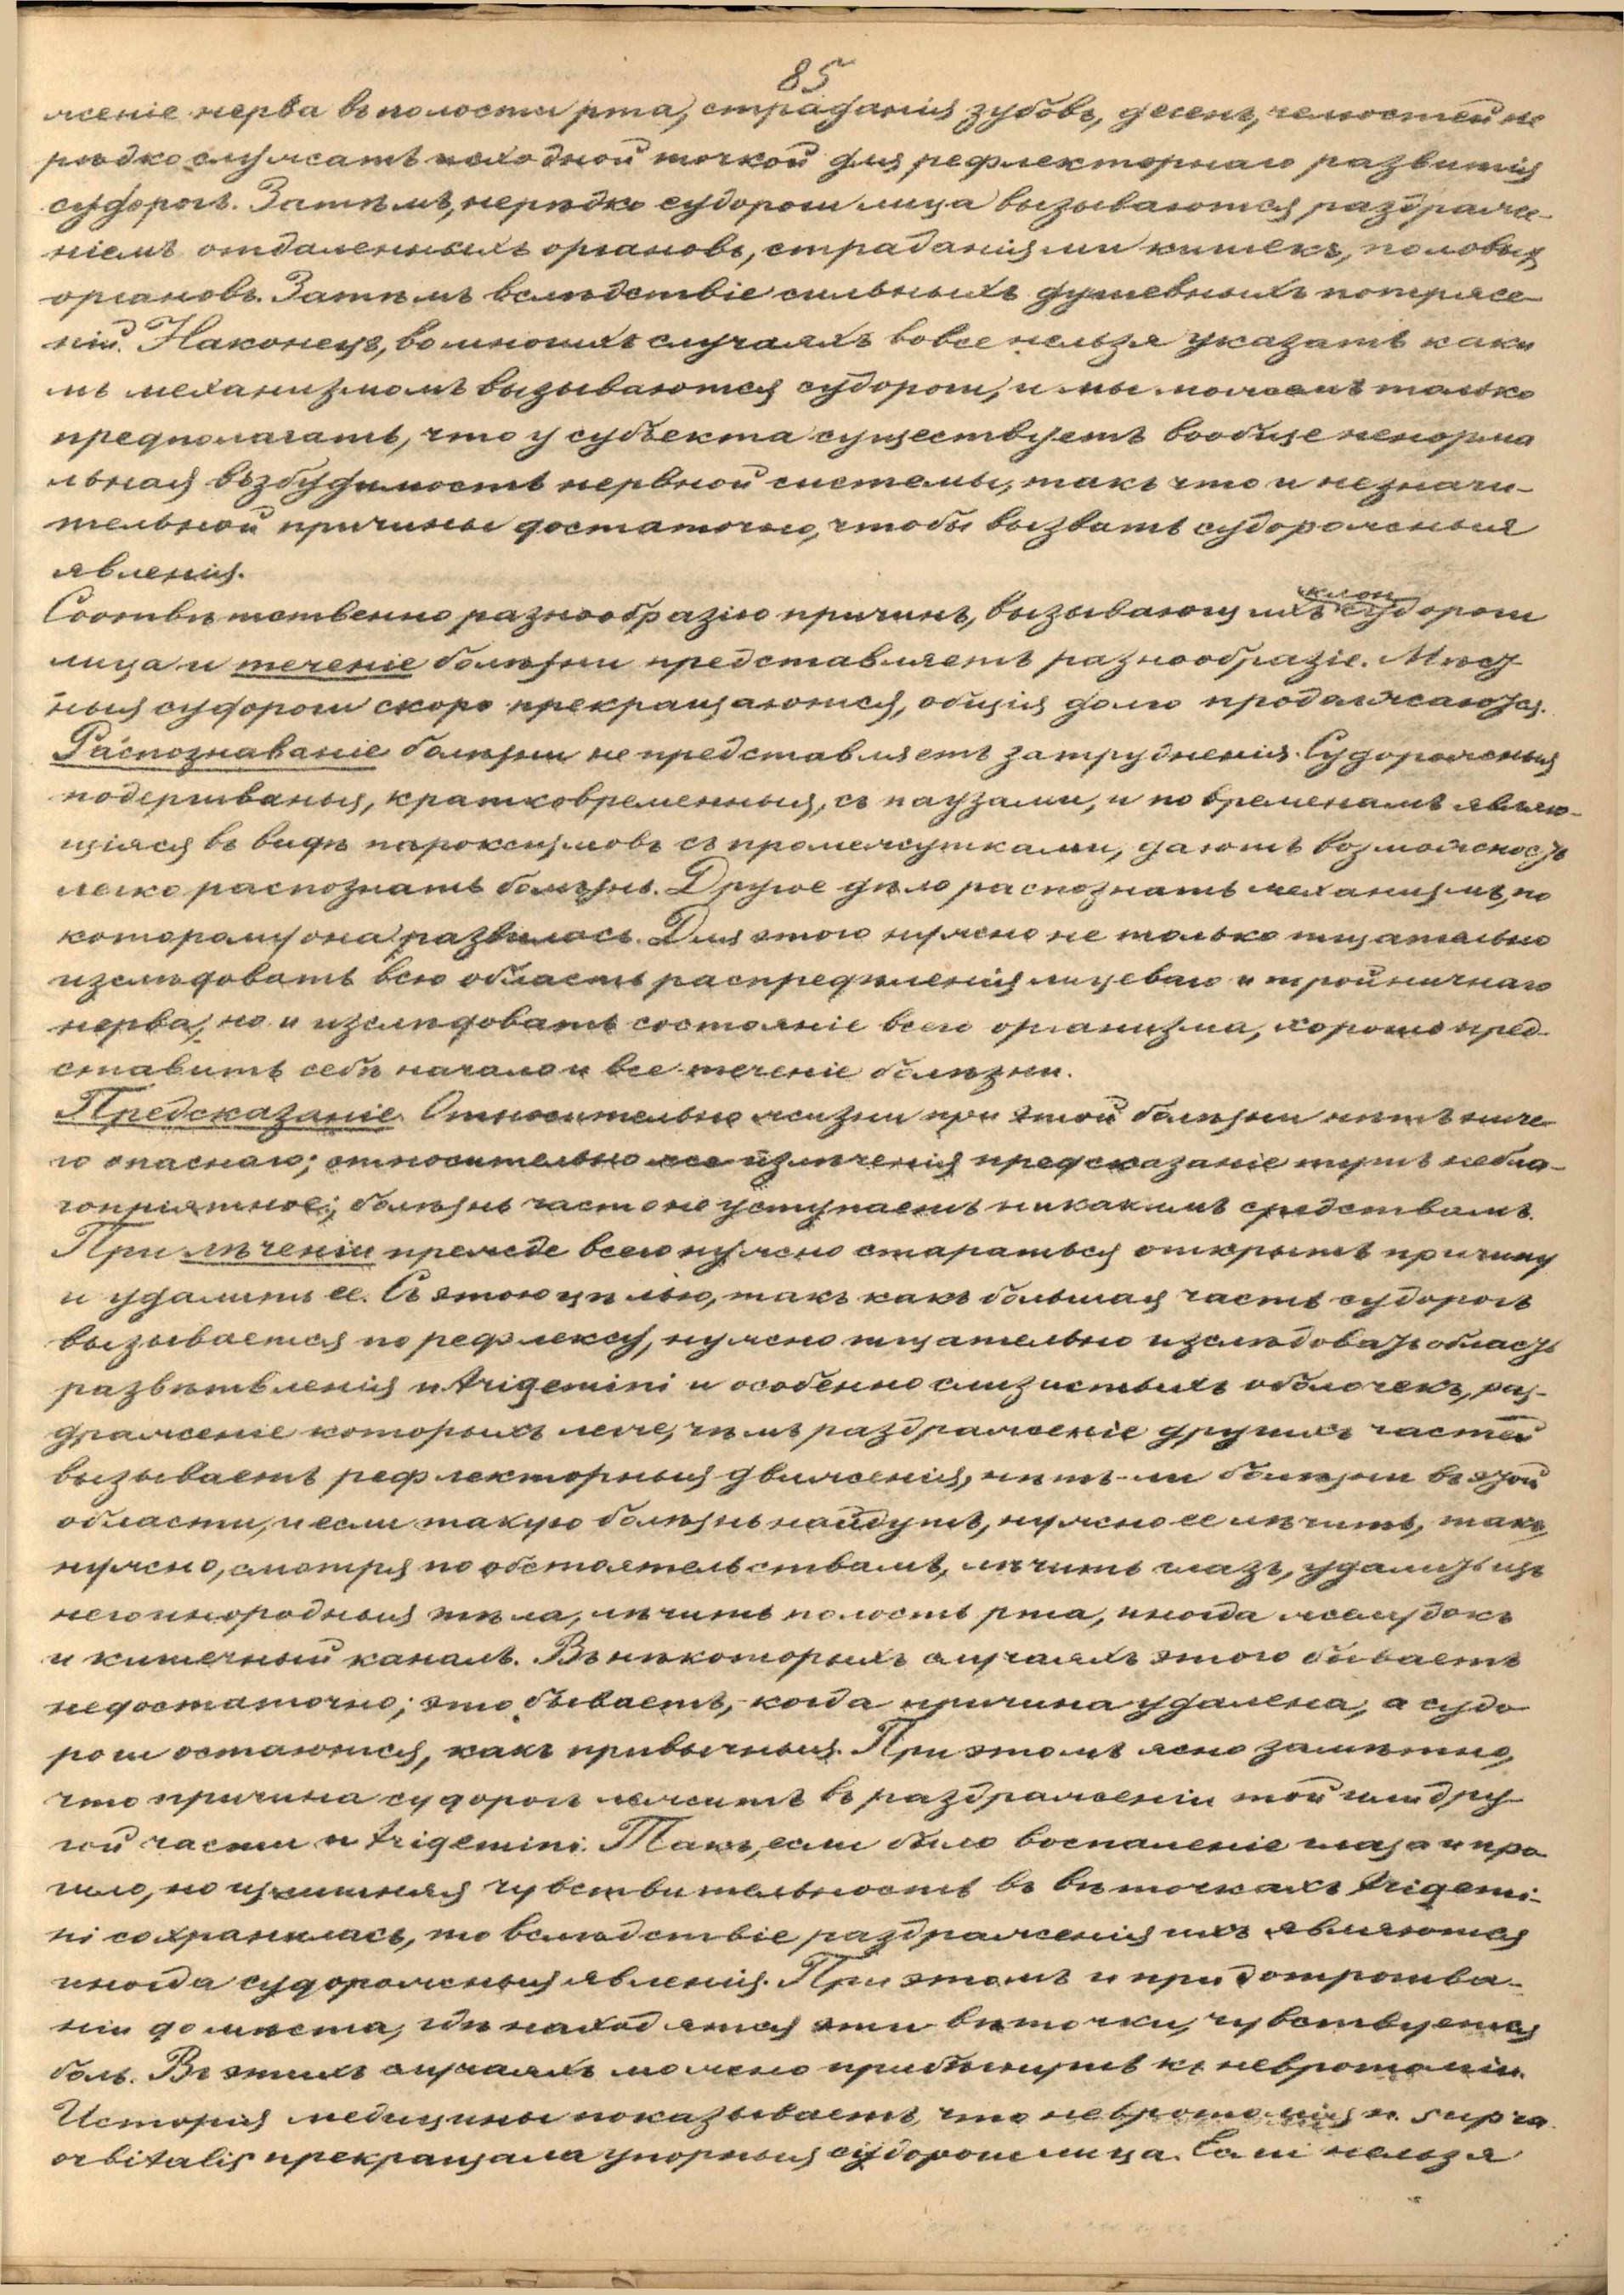 85
женіе нерва въ полости рта, страданія зубовъ, десенъ, челюстей не
рѣдко служатъ исходной точкой для рефлекторнаго развитія
судорогъ. Затѣмъ, нерѣдко судороги лица вызываются раздраже-
ніемъ отдаленныхъ органовъ, страданіями кишекъ, половых
органовъ. Затѣмъ вслѣдствіе сильныхъ душевныхъ потрясе-
ній. Наконецъ, во многихъ случаяхъ вовсе нельзя указать каки
мъ механизмомъ вызываются судороги, и мы можемъ только
предполагать, что у субъекта существуетъ вообще ненорма
льная възбудимость нервной системы, такъ что и незначи-
тельной причины достаточно, чтобы вызвать судорожныя
явленія.
Соотвѣтственно разнообразію причинъ, вызывающихъ клон судороги
лица и теченіе болѣзни представляетъ разнообразіе. Мѣст
ныя судороги скоро прекращаются, общія долго продолжаются.
Распознаваніе болѣзни не представляетъ затрудненія. Судорожныя
подергиванья, кратковременныя, съ паузами, и по временамъ являю-
щіяся въ видѣ пароксизмовъ съ промежутками, даютъ возможность
легко распознать болѣзнь. Другое дѣло распознать механизмъ, по
которому она развилась. Для этого нужно не только тщательно
изслѣдовать всю область распредѣленія лицеваго и тройничнаго
нерва, но и изслѣдовать состояніе всего организма, хорошо пред-
ставить себѣ начало и все теченіе болѣзни.
Предсказаніе. Относительно жизни при этой болѣзни нѣтъ ниче-
го опаснаго; относительно же излѣченія предсказаніе тутъ небла-
гопріятное; болѣзнь часто не уступаетъ никакимъ средствамъ.
При лѣченіи прежде всего нужно стараться открыть причину
и удалить ее. Съ этою цѣлью, такъ какъ большая часть судорогъ
вызывается по рефлексу, нужно тщательно изслѣдовать область
развѣтвленія n trigemini и особенно слизистыхъ оболочекъ, раз-
драженіе которыхъ легче, чѣмъ раздраженіе другихъ частей
вызываетъ рефлекторныя движенія, нѣтъ-ли болѣзни въ этой
области, и если такую болѣзнь найдутъ, нужно ее лѣчить, такъ
нужно, смотря по обстоятельствамъ, лѣчить глазъ, удалить изъ
него инородныя тѣла, лѣчить полость рта, иногда желудокъ
и кишечный каналъ. Въ нѣкоторыхъ случаяхъ этого бываетъ
недостаточно; это бываетъ, когда причина удалена, а судо
роги остаются, какъ привычныя. При этомъ ясно замѣтно,
что причина судорогъ лежитъ въ раздраженіи той или дру-
гой части n trigemini. Такъ, если было воспаленіе глаза и про
шло, но излишняя чувствительность въ вѣточкахъ trigemi-
ni сохранилась, то вслѣдствіе раздраженія ихъ являются
иногда судорожныя явленія. При этомъ и при дотрогива-
ніи до мѣста, гдѣ находятся эти вѣточки, чувствуется
боль. Въ этихъ случаяхъ можно прибѣгнуть къ невротоміи.
Исторія медицины показываетъ, что невротомія n. supra
orbitalis прекращала упорныя судороги лица. Если нельзя